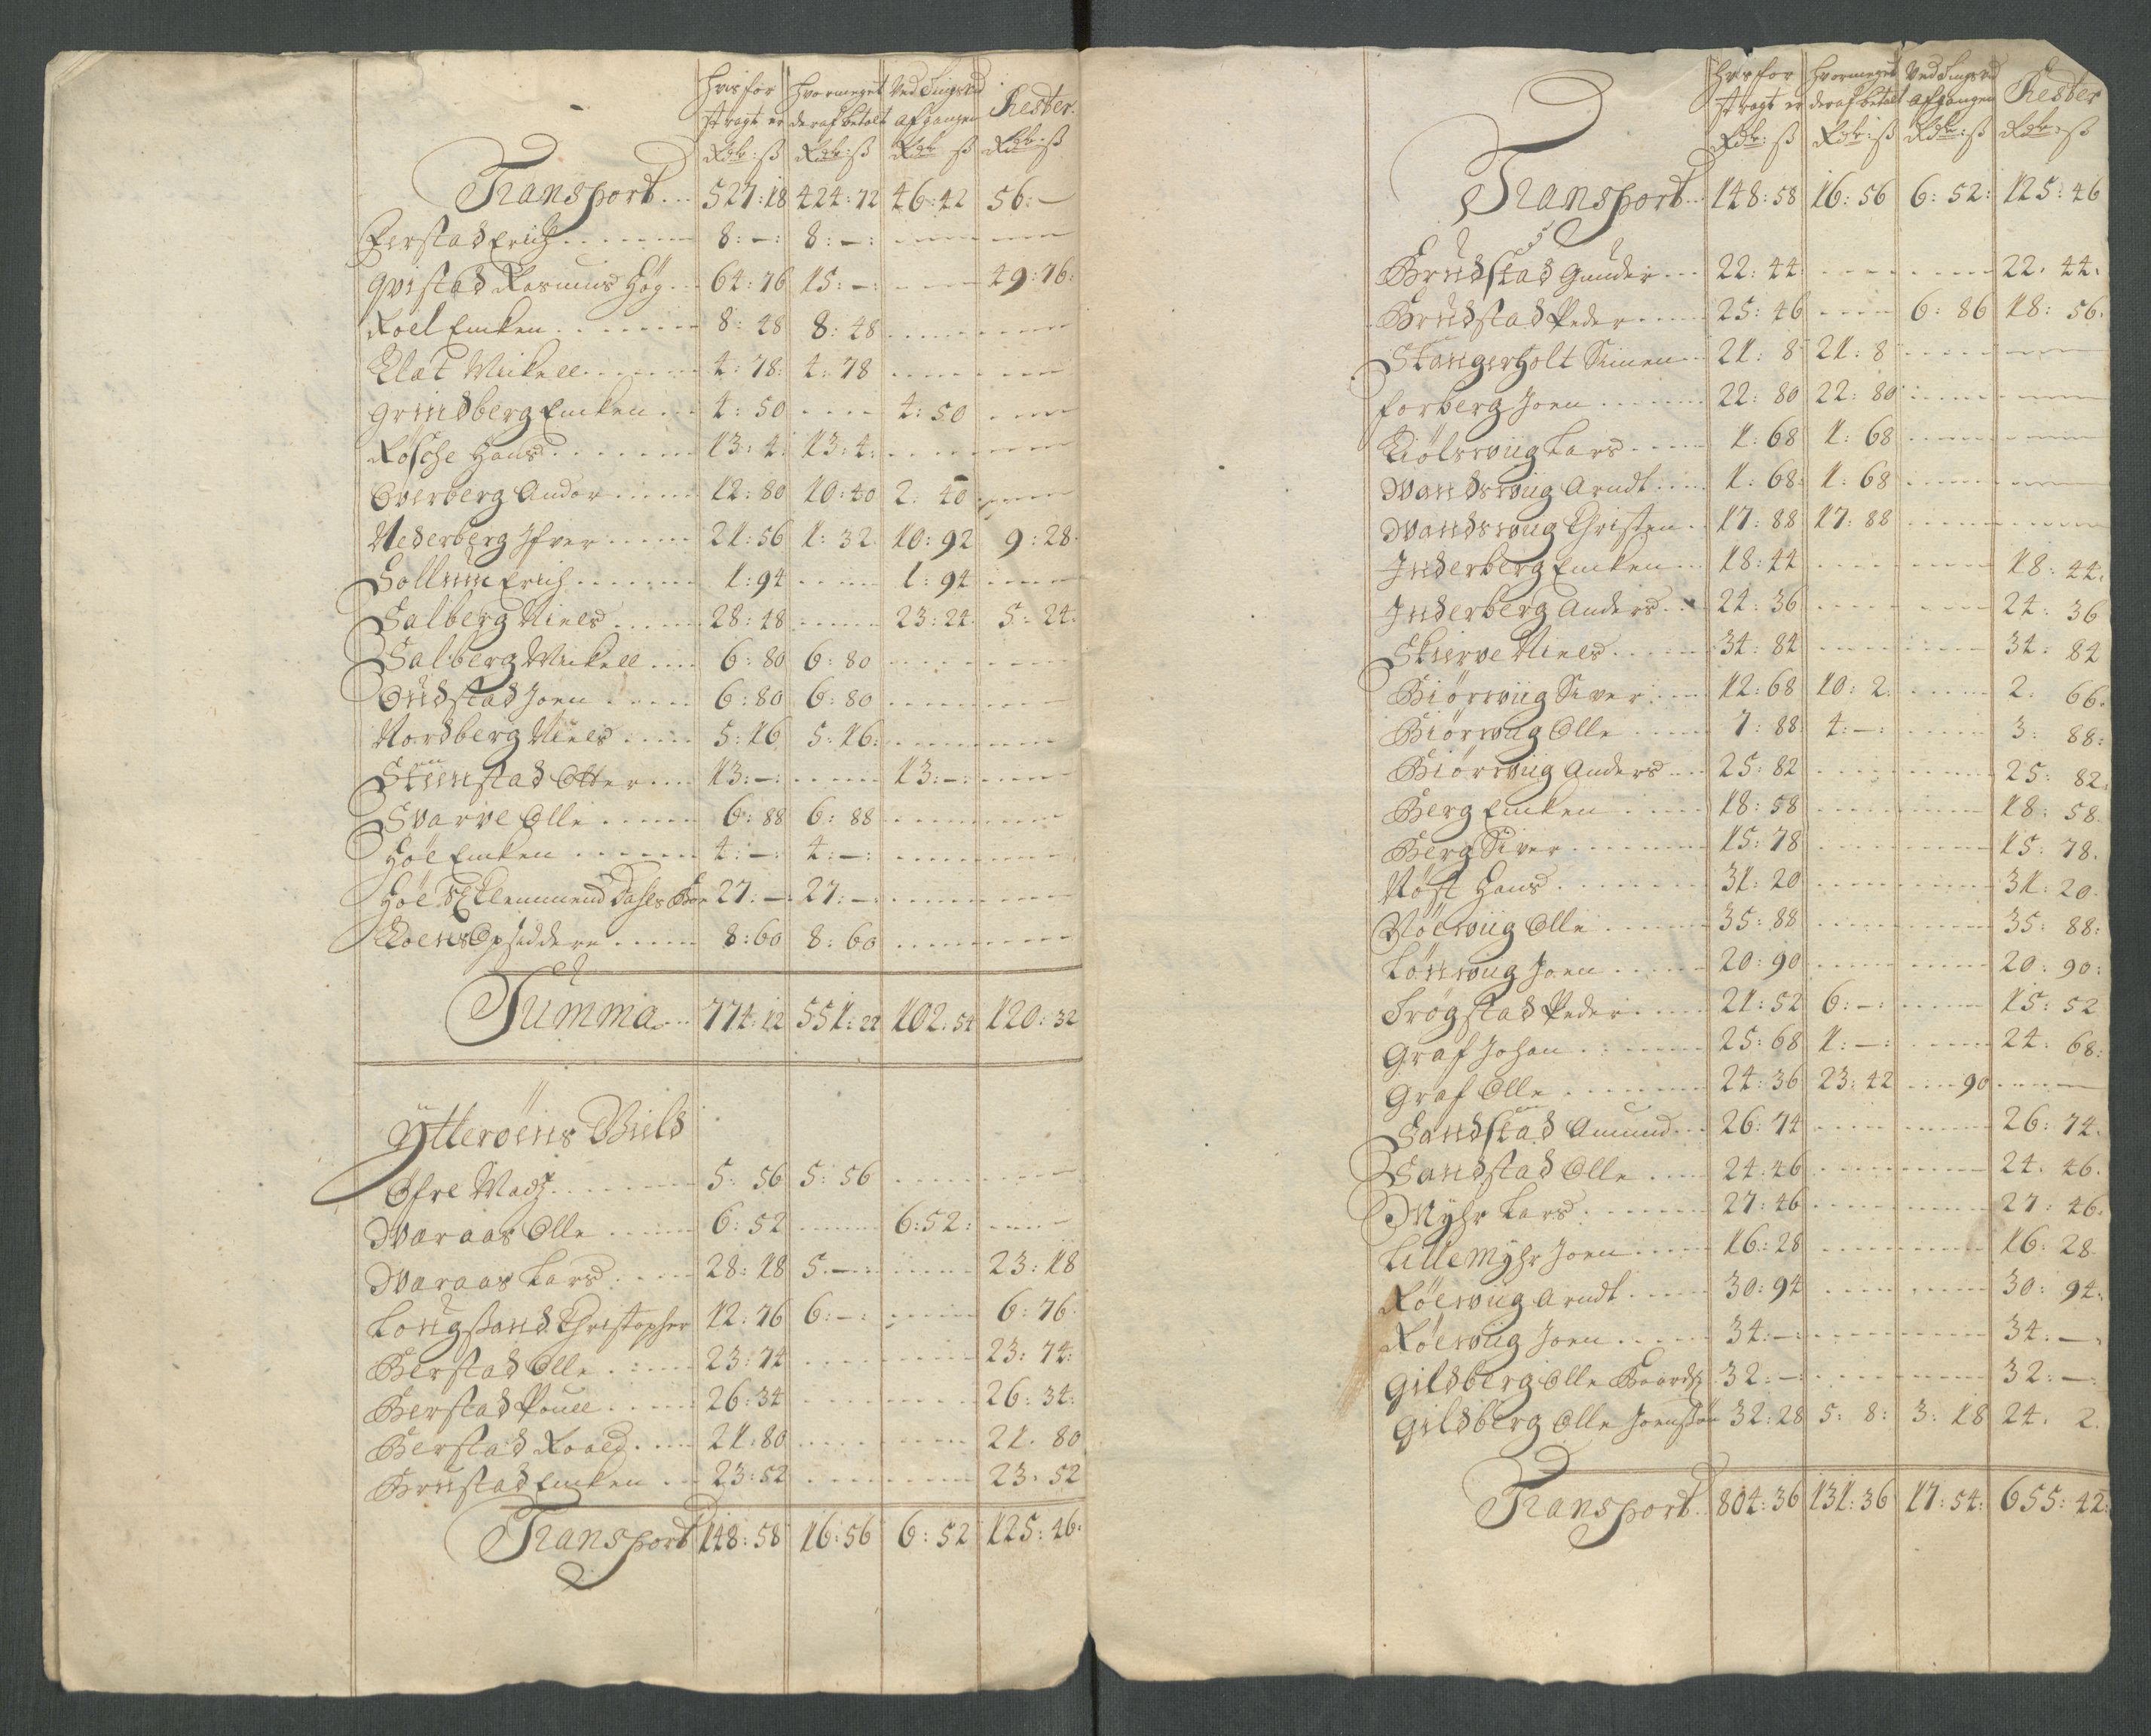 hvis for hvormeget Ved Tingsvid Rester.
st ragt er deraf betalt afgangen
Rdr: ß Rdr: ß Rdr ß Rdr: ß
Transport... 527:18 424:72 46:42 56:—
Ferstad Erich....... 8:—: 8:—:
Qvistad Rasmus Høg... 64:76 15:—: 49:76:
Roel Emken....... 8:48 8:48
Klæt Mickell...... 4:78: 4:78
Grindberg Emken... 4:50 4:50
Røsche Hans....... 13:4: 13:4:
Overberg Andor..... 12:80 10:40 2:40
Nederberg Ifver..... 21:56 1:32 10:92 9:28.
Sollum Erich....... 1:94 1:94
Salberg Niels..... 28:48 23:24. 5:24.
Salberg Mickell.... 6:80 6:80
Oudstad Joen.... 6:80 6:80
Nordberg Niels.... 5:16 5:16:
Steenstad Otter.... 13:—: 13:—:
Svarve Olle..... 6:88 6:88
Høe Emken...... 4:—: 4:—:
Høe Sl Clemmend Dahls 27:—: 27:—:
Røens Opsiddere..... 8:60 8:60
Summa... 774:12 551:22 102:54 120:32
Ytterøens Bield
Øfre Madz....... 5:56 5:56
Waraas Olle..... 6:52 6:52:
Waraas Lars..... 28:18 5:—: 23:18
Lougsand Christopher 12:76 6:—: 6:76.
Berstad Olle..... 23:74 23:74:
Berstad Pouell..... 26:34 26:34:
Berstad Roald.... 21:80 21:80
Brustad Emken... 23:52 23:52
Transport 148:58 16:56 6:52 125:46.
hvis for hvormeget Ved Tingsvid Rester
st ragt er deraf betalt afgangen
Rdr: ß Rdr: ß Rdr: ß Rdr: ß
Transport.. 148:58 16:56 6:52: 125:46
Brudstad Gunder... 22:44: 22:44.
Brudstad Peder..... 25:46 6:86 18:56.
Stangerholt Simen... 21:8 21:8
Forberg Joen...... 22:80 22:80
Kiølsviig Lars.... 1:68 1:68
Wandsviig Arndt.... 1:68: 1:68
Wandsviig Christen.. 17:88 17:88
Inderberg Emken... 18:44 18:44.
Inderberg Anders... 24:36 24:36
Skierve Niels...... 34:84 34:84
Biørviig Siver.... 12:68 10:2. 2:66.
Biørviig Olle..... 7:88 4:—: 3:88:
Biørviig Anders... 25:82 25:82.
Berg Emken..... 18:58 18:58.
Berg Siver....... 15:78 15:78.
Nøst Hans....... 31:20 31:20.
Røeviig Olle..... 35:88 35:88:
Lønviig Joen..... 20:90 20:90:
Trøgstad Peder.... 21:52 6:—: 15:52
Graf Johan..... 25:68 1:—: 24:68:
Graf Olle....... 24:36 23:42 90
Sandstad Amund... 26:74 26:74.
Sandstad Olle.... 24:46 24:46.
Myhr Lars...... 27:46 27:46.
Lille Myhr Joen..... 16:28 16:28.
Røeviig Arndt..... 30:94 30:94.
Røeviig Joen..... 34:—: 34:—.
Gildberg Olle 32:—: 32:—.
Gildberg Olle Joenssøn 32:28 5:8: 3:18 24:2.
Transport.. 804:36 131:36 17:54: 655:42: